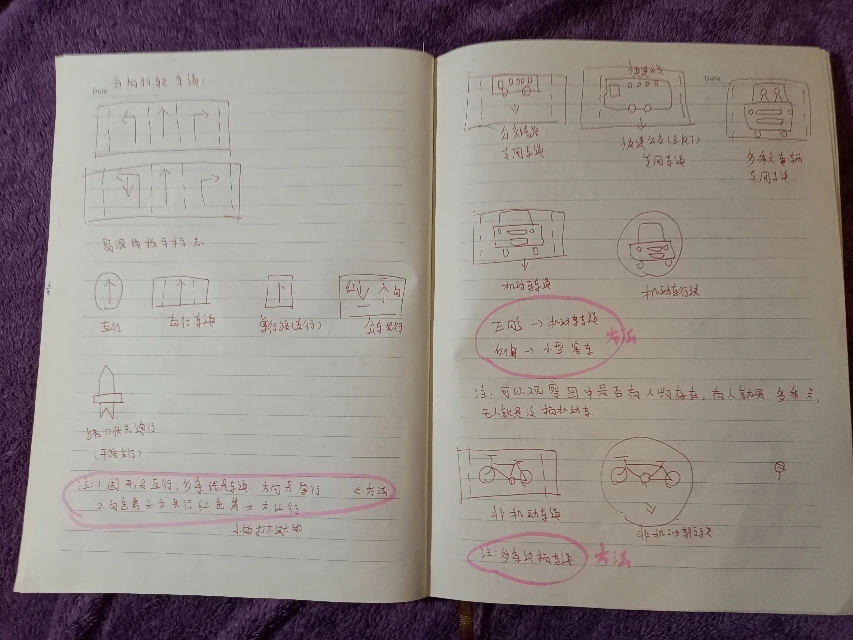 Date
分向行驶车道:
易混的指示标志
直行
直行车道
单行路(直行)
会车先行
红
白
路口优先通行
(干路先行)
注:1.圆形是直行,多条线是车道 方向是单行 <方法
2.白色箭头方先行红色箭头方让行
Date
公交线路
专用车道
快速公交
快速公交(BRT)
专用车道
多乘员车辆
专用车道
机动车车道
机动车行驶
正脸→机动车车道
侧身→小型客车
方法
注:可以观察图中是否有人物存在,有人就是多乘员,
无人就是没有机动车.
非机动车车道
非机动车行驶
注:多条线指车道
方法